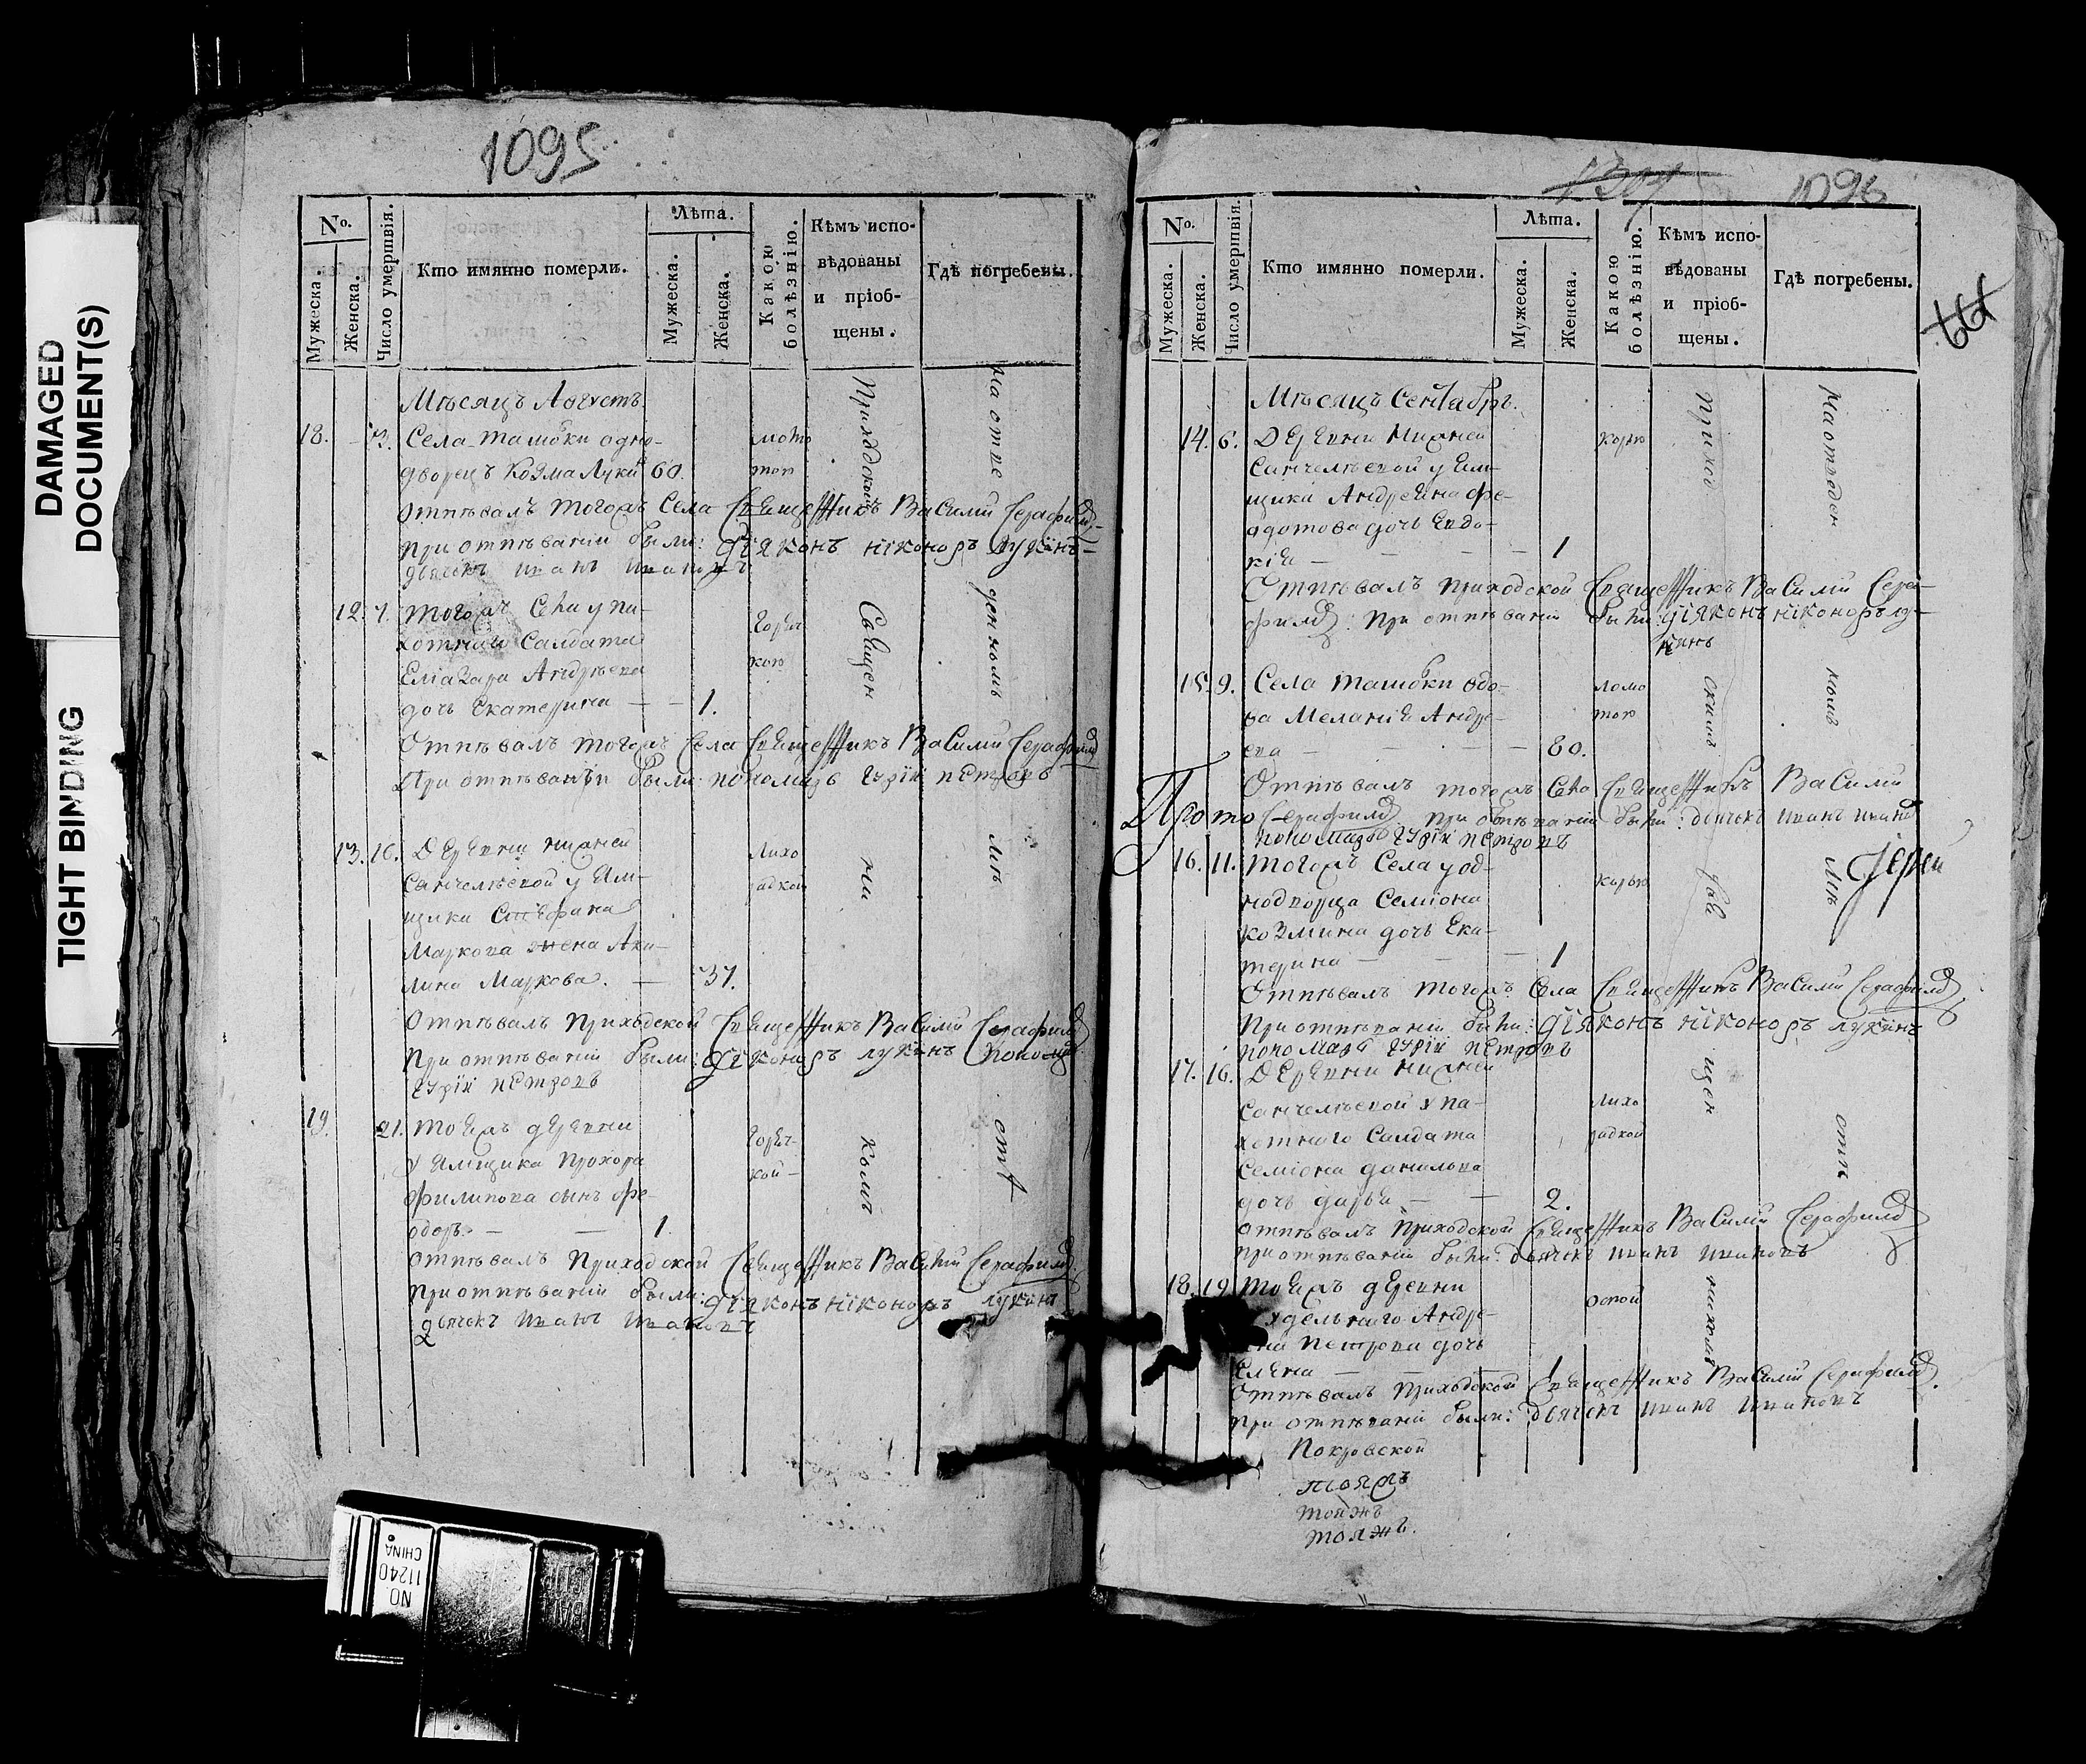 DAMAGED
DOCUMENT(S)
TIGHT BINDING
1095
№.
Мужеска.
Женска.
Число умертвія.
Кто имянно померли.
Лѣта.
Мужеска.
Женска.
Какою
болѣзнію.
Кѣмъ испо-
вѣдованы
и пріоб-
щены.
Гдѣ погребены.
Мѣсяцъ Августъ
18. 3. Села Ташовки одно-
дворецъ Козма Лукин 60.
ломо
тою
Отпѣвалъ тогожъ Села Священникъ Василий Серафимовъ
при отпѣваніи были: діяконъ Никоноръ Лукинъ
дьячекъ Иванъ Ивановъ
12. 7. Тогожъ Села у па-
хотнаго Салдата
Еліазара Андрѣева
дочь Екатерина — — 1.
горяч
кою
Отпѣвалъ тогожъ Села Священникъ Василий Серафимовъ
При отпѣваніи были: пономарь Гурій Петровъ
13. 16. Деревни нижней
Санчелѣевой у ям-
щика Стефана
Маркова жена Аки-
лина Маркова. — 37.
Лихо
радкой
Отпѣвалъ приходской Священникъ Василій Серафимовъ
При отпѣваніи были: Никоноръ Лукинъ Пономарь
Гурій Петровъ
19. 21. Тоежъ деревни
у ямщика Прохора
Филипова сынъ Фе-
одоръ — — 1.
горяч-
кой
Отпѣвалъ Приходской Священникъ Василий Серафимовъ
При отпѣваніи были: діяконъ Никоноръ Лукинъ
дьячекъ Иванъ Ивановъ
2
Приходскимъ
Священ
ни
комъ
на отве
денномъ
мѣ
стѣ
1096
№.
Мужеска.
Женска.
Число умертвія.
Кто имянно померли.
Лѣта.
Мужеска.
Женска.
Какою
болѣзнію.
Кѣмъ испо-
вѣдованы
и пріоб-
щены.
Гдѣ погребены.
Мѣсяцъ Сентябрь.
14. 6. Деревни Нижней
Санчелѣевой у ям-
щика Андреяна Фе-
дотова дочь Евдо-
кія — — — 1
корью
Отпѣвалъ приходской Священникъ Василий Сера-
фимовъ. При отпѣваніи были: діяконъ Никоноръ Лу-
кинъ
15. 9. Села Ташовки вдо-
ва Меланія Андре-
ева — — — 80.
ломо
тою
Отпѣвалъ тогожъ Села Священникъ Василий
Серафимовъ при отпѣваніи были: дьячекъ Иванъ Иванов
пономарь Гурій Петровъ
Прото
Іерей
16. 11. Тогожъ Села у од-
нодворца Семіона
Козмина дочь Ека-
терина — — — 1
корью
Отпѣвалъ тогожъ Села Священникъ Василий Серафимовъ
При отпѣваніи были: діяконъ Никоноръ Лукинъ
пономарь Гурій Петровъ
17. 16. Деревни нижней
Санчелѣевой у па-
хотнаго Салдата
Семіона Данилова
дочь Дарья — — 2.
лихо
радкой
Отпѣвалъ Приходской Священникъ Василий Серафимовъ
При отпѣваніи были: Дьячекъ Иванъ Ивановъ
18. 19. Тоежъ деревни
удельнаго Андре-
яна Петрова дочь
Елена — — — 1
оспой
Отпѣвалъ Приходской Священникъ Василій Серафимовъ
При отпѣваніи были: дьячекъ Иванъ Ивановъ
Покровской
тояжъ
тоижъ
тояжъ.
приход
скимъ
свя
щен
никомъ
На отведен
номъ
мѣ
стѣ